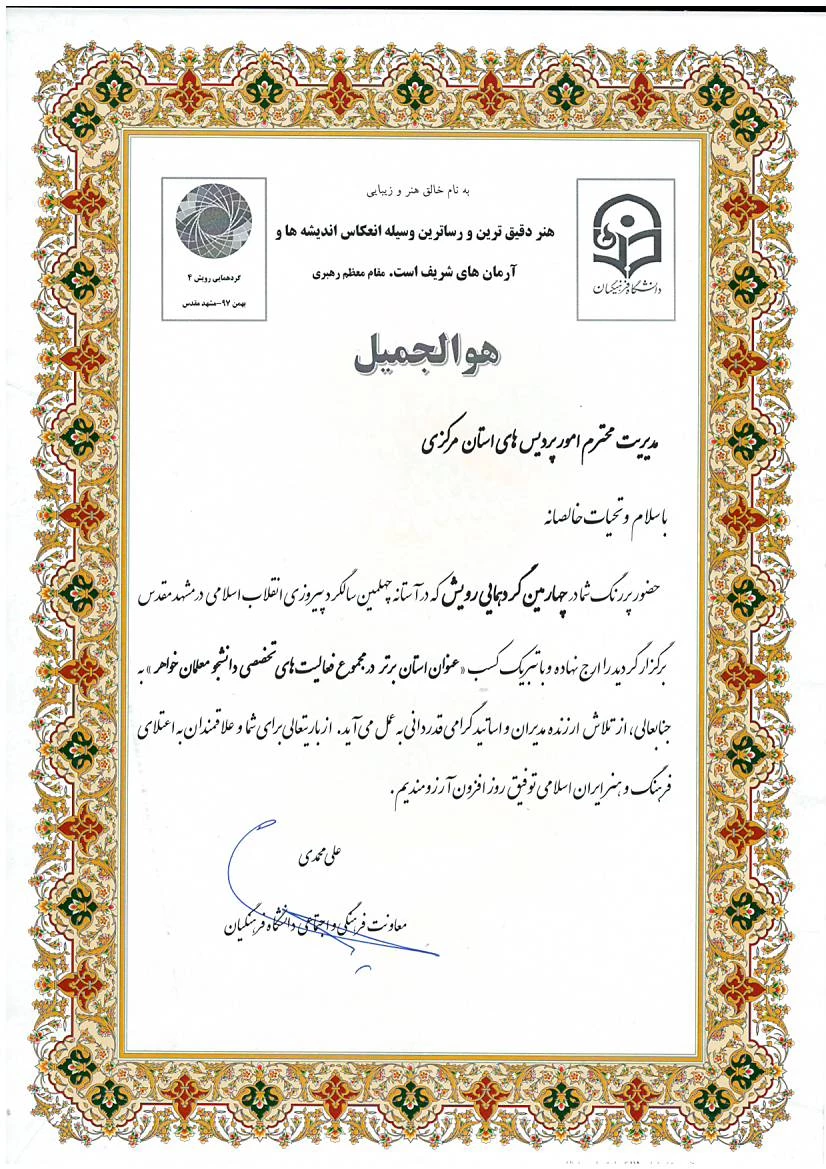 به نام خالق هنر و زیبایی
هنر دقیق ترین و رساترین وسیله انعکاس اندیشه ها و
آرمان های شریف است. مقام معظم رهبری
دانشگاه فرهنگیان
گردهمایی رویش ۴
بهمن ۹۷-مشهد مقدس
هوالجمیل
مدیریت محترم امور پردیس های استان مرکزی
با سلام و تحیات خالصانه
حضور پررنگ شما در چهارمین گردهمایی رویش که در آستانه چهلمین سالگرد پیروزی انقلاب اسلامی در مشهد مقدس
برگزار گردید را ارج نهاده و با تبریک کسب «عنوان استان برتر در مجموع فعالیت های تخصصی دانشجو معلمان خواهر» به
جنابعالی، از تلاش ارزنده مدیران و اساتید گرامی قدردانی به عمل می آید. از باریتعالی برای شما و علاقمندان به اعتلای
فرهنگ و هنر ایران اسلامی توفیق روز افزون آرزومندیم.
علی محمدی
معاونت فرهنگی و اجتماعی دانشگاه فرهنگیان